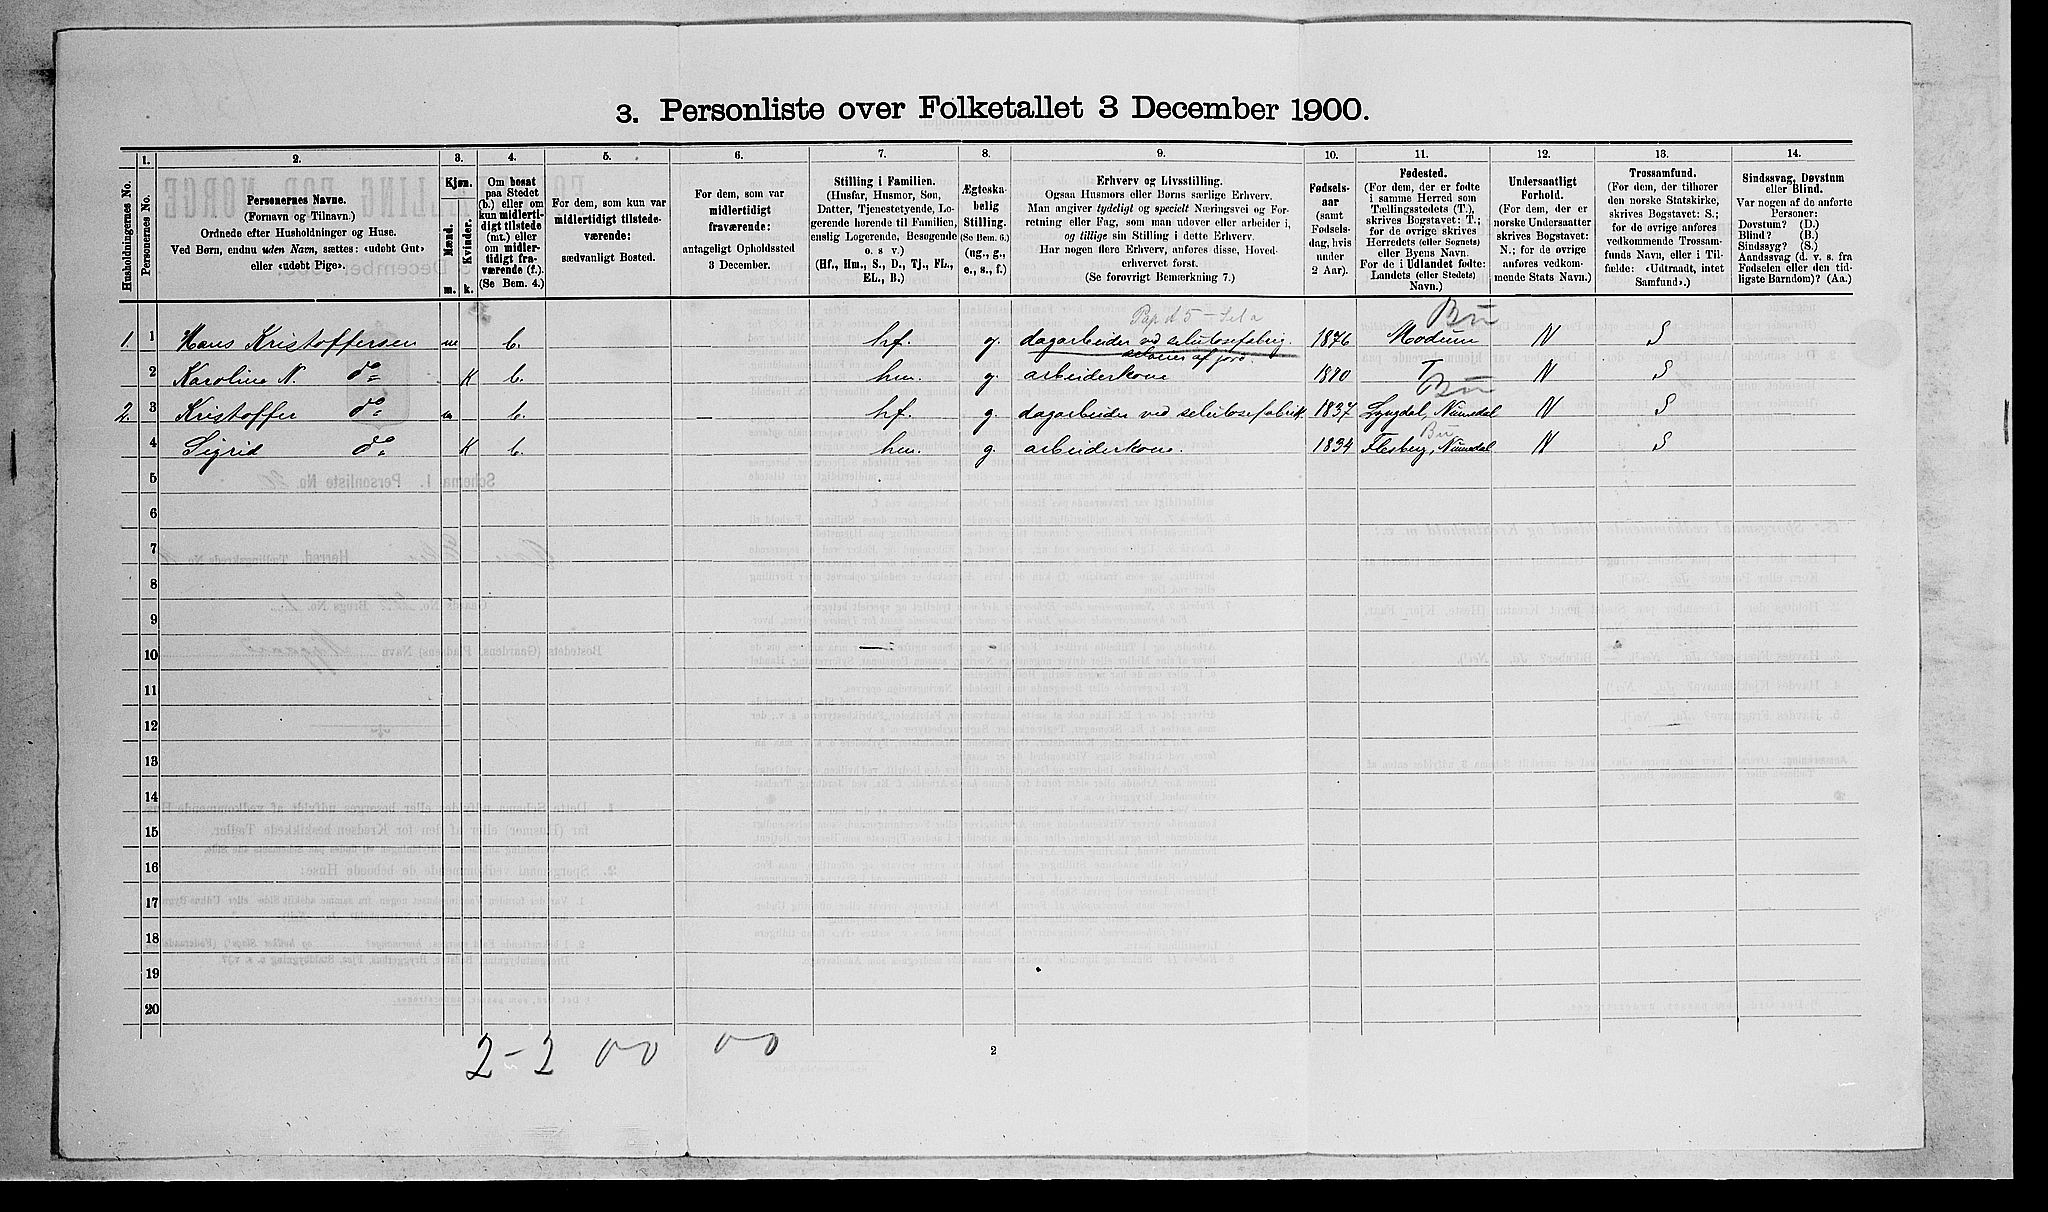 3. Personliste over Folketallet 3 December 1900.
1. 2. 3. 4. 5. 6. 7. 8. 9. 10. 11. 12. 13. 14.
Husholdningernes No.
Personernes No.
Personernes Navne.
(Fornavn og Tilnavn.)
Ordnede efter Husholdninger og Huse.
Ved Børn, endnu uden Navn, sættes: «udøbt Gut»
eller «udøbt Pige».
Kjøn.
Mænd.
Kvinder.
m. k.
Om bosat
paa Stedet
(b.) eller om
kun midlerti-
digt tilstede
(mt.) eller
om midler-
tidigt fra-
værende (f.).
(Se Bem. 4.)
For dem, som kun var
midlertidigt tilstede-
værende:
sædvanligt Bosted.
For dem, som var
midlertidigt
fraværende:
antageligt Opholdssted
3 December.
Stilling i Familien.
(Husfar, Husmor, Søn,
Datter, Tjenestetyende, Lo-
gerende hørende til Familien,
enslig Logerende, Besøgende
o. s v.)
(Hf., Hm., S., D., Tj., FL.,
EL., B.)
Ægteska-
belig
Stilling.
(Se Bem. 6.)
(ug., g.,
e., s., f.)
Erhverv og Livsstilling.
Ogsaa Husmors eller Børns særlige Erhverv.
Man angiver tydeligt og specielt Næringsvei og For-
retning eller Fag, som man udøver eller arbeider i,
og tillige sin Stilling i dette Erhverv.
Har nogen flere Erhverv, anføres disse, Hoved-
erhvervet først.
(Se forøvrigt Bemærkning 7.)
Fødsels-
aar
(samt
Fødsels-
dag, hvis
under
2 Aar).
Fødested.
(For dem, der er fødte
i samme Herred som
Tællingsstedets (T.),
skrives Bogstavet: T.;
for de øvrige skrives
Herredets (eller Sognets)
eller Byens Navn.
For de i Udlandet fødte:
Landets (eller Stedets)
Navn.)
Undersaatligt
Forhold.
(For dem, der er
norske Undersaatter
skrives Bogstavet:
N.; for de øvrige
anføres vedkom-
mende Stats Navn.)
Trossamfund.
(For dem, der tilhører
den norske Statskirke,
skrives Bogstavet: S.;
for de øvrige anføres
vedkommende Trossam-
funds Navn, eller i Til-
fælde: «Udtraadt, intet
Samfund».)
Sindssvag, Døvstum
eller Blind.
Var nogen af de anførte
Personer:
Døvstum? (D.)
Blind? (B.)
Sindssyg? (S.)
Aandssvag (d. v. s. fra
Fødselen eller den tid-
ligste Barndom)? (Aa.)
Bu
1. 1 Hans Kristoffersen m b. hf. g. dagarbeider ved selulosefabrig. 1876 Modum N S
selveier af jord
2 Karoline N. do k b. hm. g. arbeiderkone 1870 T N S
Bu
2. 3 Kristoffer do m b. hf. g. dagarbeider ved selulosefabrik 1837 Lyngdal, Numedal N S
Bu
4 Sigrid do k b. hm. g. arbeiderkone. 1834 Flesberg, Numedal N S
5
6
7
8
9
10
11
12
13
14
15
16
17
18
19
20
2-2 00 00
2